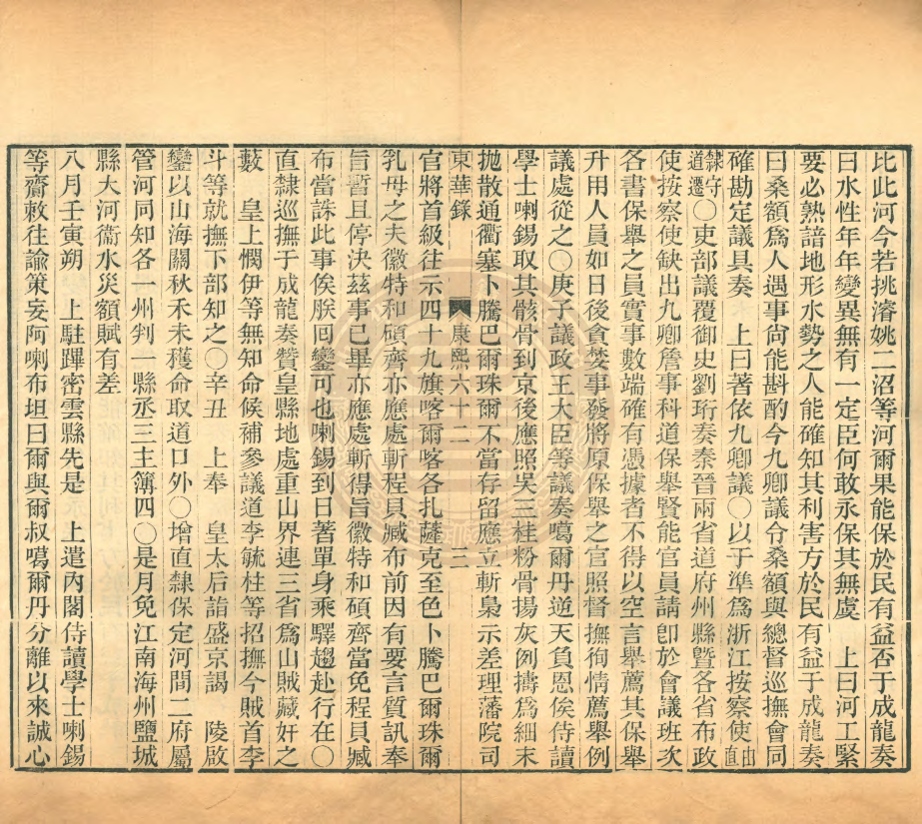 比此河今若挑濬姚二沼等河爾果能保於民有益否于成龍奏
曰水性年年變異無有一定臣何敢永保其無虞　上曰河工緊
要必熟諳地形水勢之人能確知其利害方於民有益于成龍奏
曰桑額爲人遇事尙能斟酌今九卿議令桑額與總督巡撫會同
確勘定議具奏　上曰著依九卿議〇以于準爲浙江按察使由直
隸守道遷〇吏部議覆御史劉珩奏秦晉兩省道府州縣曁各省布政
使按察使缺出九卿詹事科道保舉賢能官員請卽於會議班次
各書保舉之員實事數端確有憑據者不得以空言舉薦其保舉
升用人員如日後貪婪事發將原保舉之官照督撫徇情薦舉例
議處從之〇庚子議政王大臣等議奏噶爾丹逆天負恩俟侍讀
學士喇錫取其骸骨到京後應照吳三桂粉骨揚灰例擣爲細末
拋散通衢塞卜騰巴爾珠爾不當存留應立斬梟示差理藩院司
東華錄　康熙六十二　三
官將首級往示四十九旗喀爾喀各扎薩克至色卜騰巴爾珠爾
乳母之夫徽特和碩齊亦應處斬程員臧布前因有要言質訊奉
旨暫且停決茲事已畢亦應處斬得旨徽特和碩齊當免程員臧
布當誅此事俟朕囘鑾可也喇錫到日著單身乘驛趨赴行在〇
直隸巡撫于成龍奏贊皇縣地處重山界連三省爲山賊藏奸之
藪　皇上憫伊等無知命候補參議道李毓柱等招撫今賊首李
斗等就撫下部知之〇辛丑　上奉　皇太后詣盛京謁　陵啟
鑾以山海關秋禾未穫命取道口外〇增直隸保定河間二府屬
管河同知各一州判一縣丞三主簿四〇是月免江南海州鹽城
縣大河衞水災額賦有差
八月壬寅朔　上駐蹕密雲縣先是　上遣內閣侍讀學士喇錫
等齎敕往諭策妄阿喇布坦曰爾與爾叔噶爾丹分離以來誠心